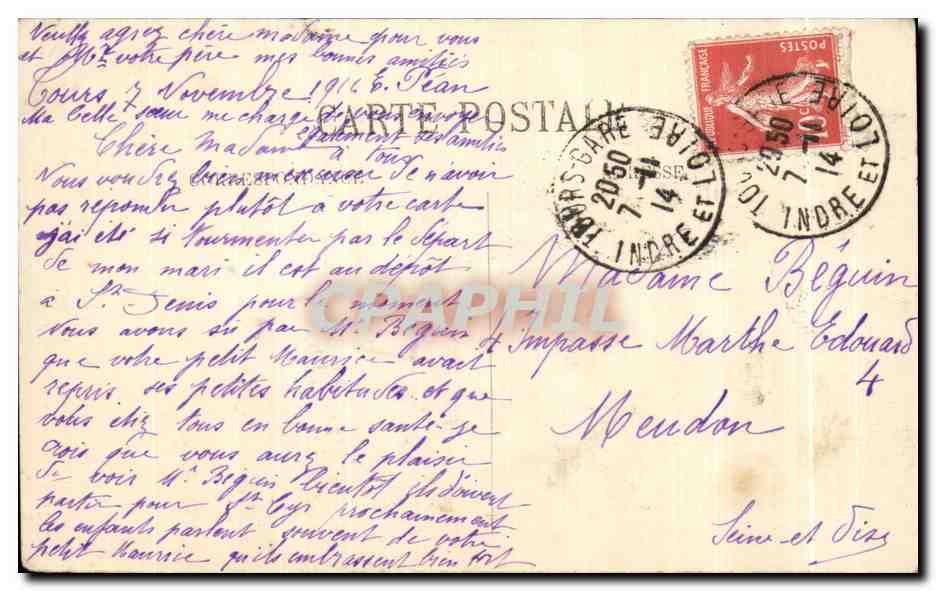 Veuillez agréz chère madame pour vous
et Mr votre père mes bonnes amitiés
Tours 7 Novembre 191 E. Péan
CARTE POSTALE
Ma belle sœur me charge de vous envoyer
également des amitiés
Chère Madame
à tous
CORRESPONDANCE
Vous voudrez bien m'excuser de n'avoir
pas repondu plutôt à votre carte
j'ai été si tourmenter par le départ
de mon mari il est au dépôt
à St Denis pour le moment
Nous avons su par Mr Béguin
que votre petit Maurice avait
repris ses petites habitudes et que
vous étiez tous en bonne santé je
crois que vous aurez le plaisir
de voir Mr Béguin bientot ils doivent
partir pour St Cyr prochainement
les enfants parlent souvent de votre
petit Maurice qu'ils embrassent bien fort
Madame Béguin
4 Impasse Marthe Edouard
4
Meudon
Seine et Oise
POSTES
RÉPUBLIQUE FRANÇAISE
10c
TOURS-GARE
20 50
7 -11
14
INDRE ET LOIRE
20 50
7 -11
14
INDRE ET LOIRE
CPAPHIL